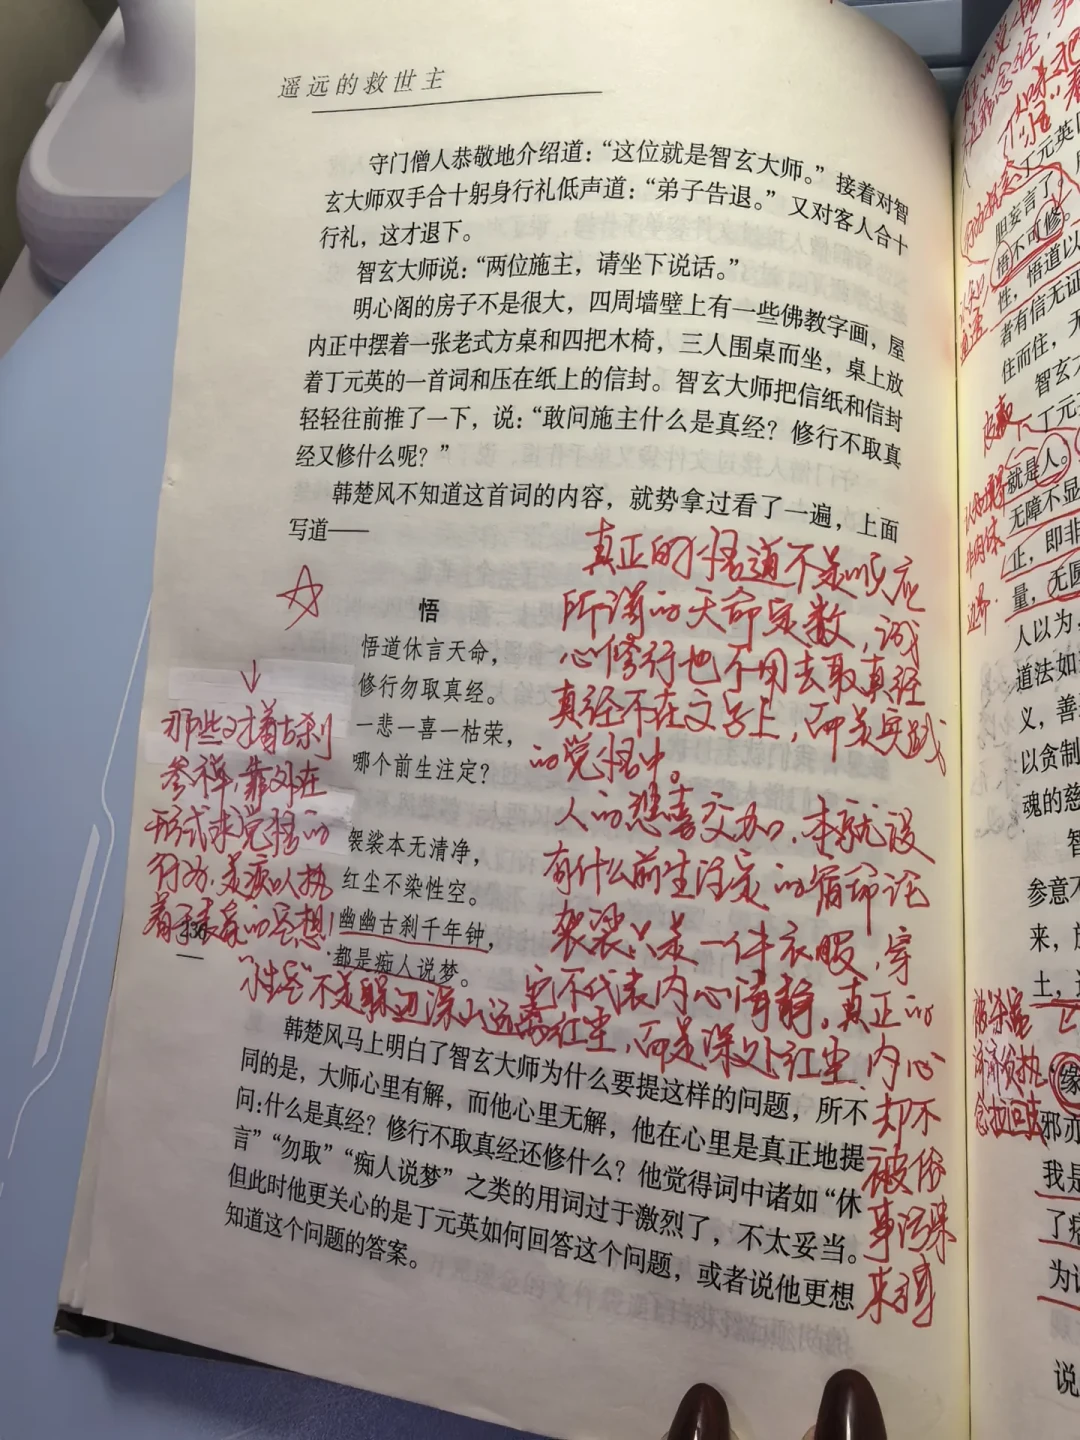 遥远的救世主
守门僧人恭敬地介绍道：“这位就是智玄大师。”接着对智
玄大师双手合十躬身行礼低声道：“弟子告退。”又对客人合十
行礼，这才退下。
智玄大师说：“两位施主，请坐下说话。”
明心阁的房子不是很大，四周墙壁上有一些佛教字画，屋
内正中摆着一张老式方桌和四把木椅，三人围桌而坐，桌上放
着丁元英的一首词和压在纸上的信封。智玄大师把信纸和信封
轻轻往前推了一下，说：“敢问施主什么是真经？修行不取真
经又修什么呢？”
韩楚风不知道这首词的内容，就势拿过看了一遍，上面
写道——
悟
悟道休言天命，
修行勿取真经。
一悲一喜一枯荣，
哪个前生注定？
袈裟本无清净，
红尘不染性空。
幽幽古刹千年钟，
都是痴人说梦。
真正的悟道不是顺应
所谓的天命定数，诚
心修行也不用去取真经
真经不在文字上，而是实践
的觉悟中。
人的悲喜交加，本就没
有什么前生注定的宿命论
袈裟只是一件衣服，穿
它不代表内心清静。真正的
“性空”不是躲进深山远离红尘，而是深处红尘，内心
却不
被俗
事污染
来得
那些对着古刹
参禅，靠外在
形式求觉悟的
行为，是痴人执
着的妄想！
韩楚风马上明白了智玄大师为什么要提这样的问题，所不
同的是，大师心里有解，而他心里无解，他在心里是真正地提
问：什么是真经？修行不取真经还修什么？他觉得词中诸如“休
言”“勿取”“痴人说梦”之类的用词过于激烈了，不太妥当。
但此时他更关心的是丁元英如何回答这个问题，或者说他更想
知道这个问题的答案。
丁元英
胆妄言了。
悟不可修。
性，悟道以
者有信无证
住而住，无
智玄
丁元
就是人。
无障不显
止，即非
量，无圆
人以为，
道法如
义，善
以贪制
魂的慈
智
参意不
来，
土，
缘
邪亦
我是
了痞
为认
说
边界